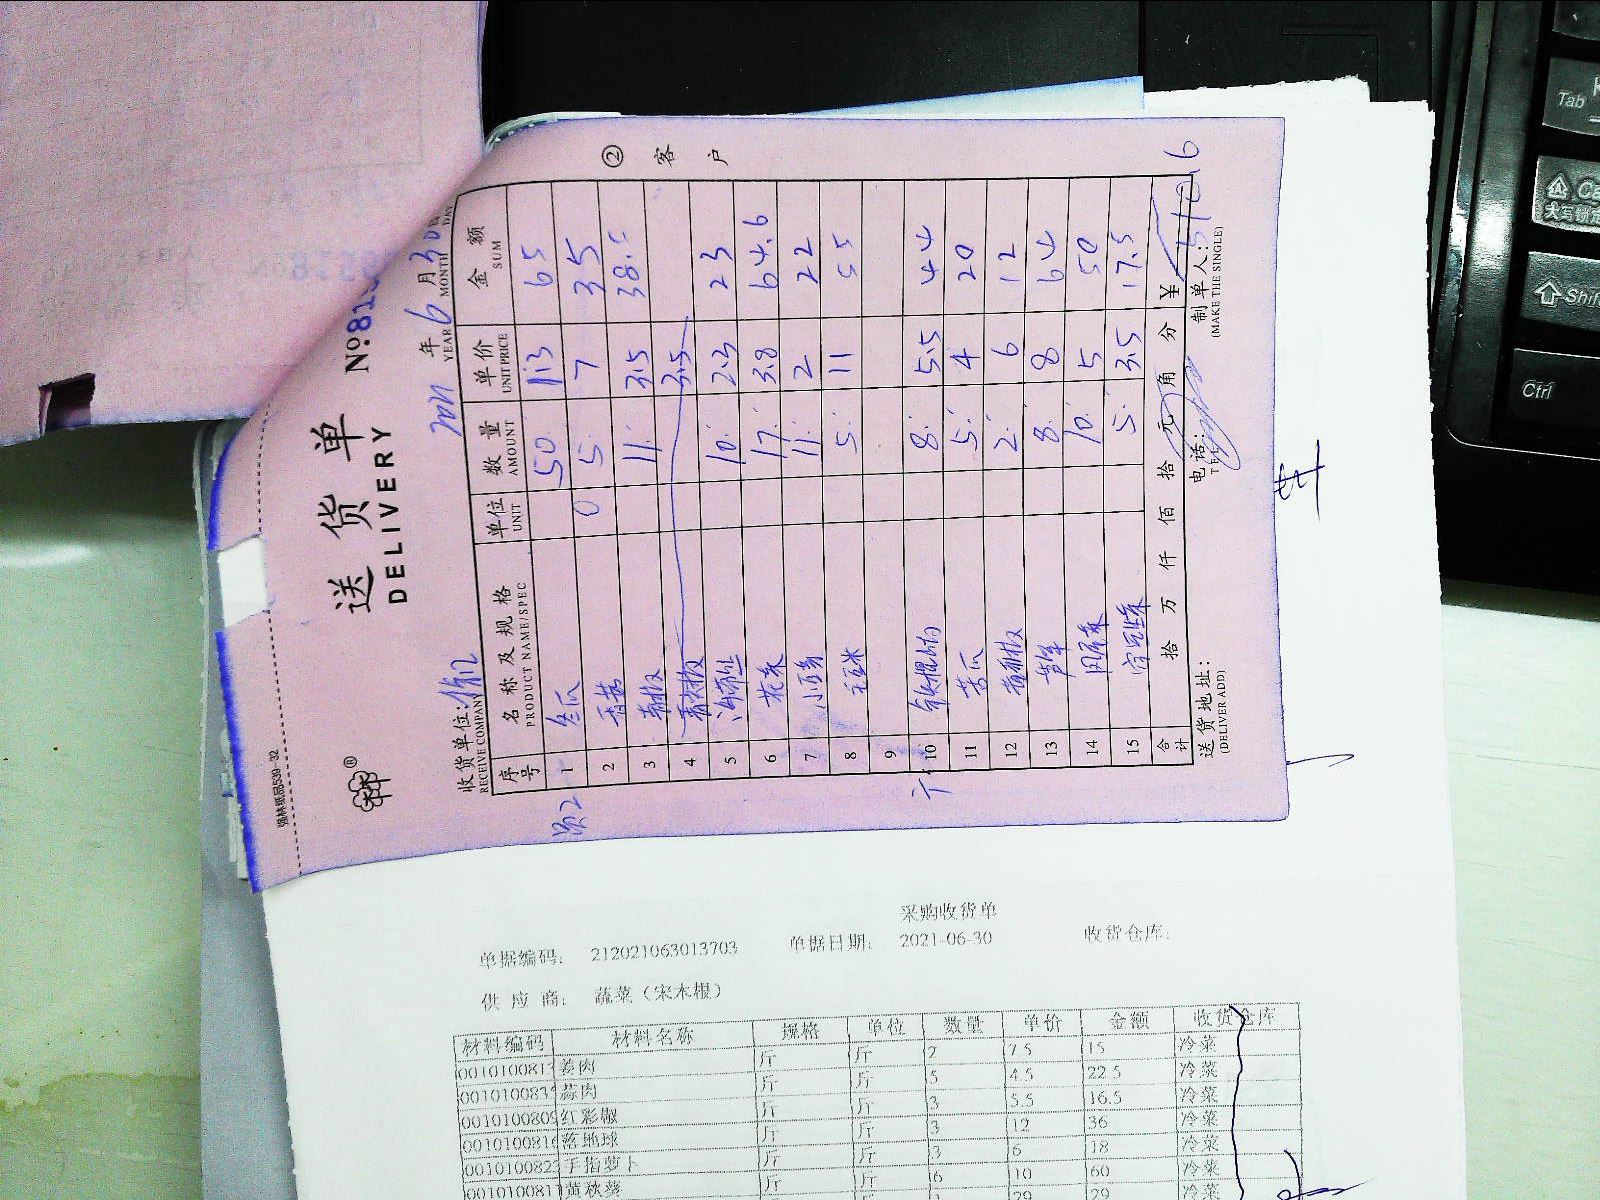 强林纸品539-32
送货单
DELIVERY
№:81
②客户
收货单位:
RECEIVE COMPANY
2021年6月30日
YEAR MONTH DAY
序号 名称及规格 单位 数量 单价 金额
PRODUCT NAME/SPEC UNIT AMOUNT UNIT PRICE SUM
1 冬瓜 50 1.3 65
2 香菇 5 7 35
3 青椒 11 3.5 38.5
4 3.5
5 10 2.3 23
6 花菜 17 3.8 64.6
7 11 2 22
8 玉米 5 11 55
9
10 8 5.5 44
11 苦瓜 5 4 20
12 2 6 12
13 芦笋 8 8 64
14 10 5 50
15 5 3.5 17.5
合计 拾 万 仟 佰 拾 元 角 分 ¥ 510.6
送货地址:
(DELIVER ADD)
电话:
TEL
制单人:
(MAKE THE SINGLE)
采购收货单
单据编码: 212021063013703 单据日期: 2021-06-30 收货仓库:
供应商: 蔬菜（宋木根）
材料编码 材料名称 规格 单位 数量 单价 金额 收货仓库
001010081 姜肉 斤 斤 2 7.5 15 冷菜
001010083 蒜肉 斤 斤 5 4.5 22.5 冷菜
0010100809 红彩椒 斤 斤 3 5.5 16.5 冷菜
001010081 落地球 斤 斤 3 12 36 冷菜
001010082 手指萝卜 斤 斤 3 6 18 冷菜
001010081 黄秋葵 斤 斤 6 10 60 冷菜
29 29 冷菜
Tab
大写锁定
Shift
Ctrl